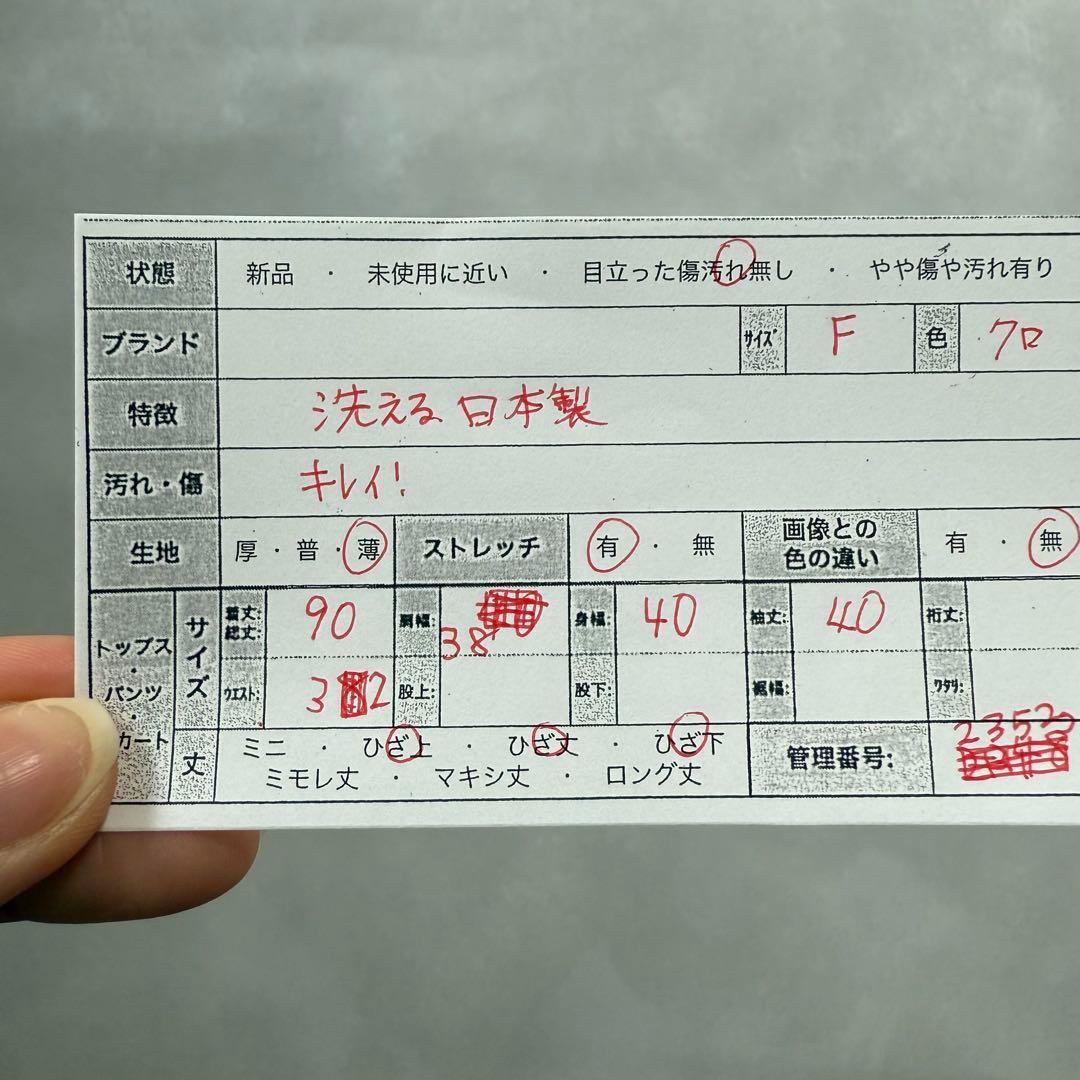 状態 新品 ・ 未使用に近い ・ 目立った傷汚れ無し ・ やや傷や汚れ有り
ブランド サイズ F 色 クロ
特徴 洗える 日本製
汚れ・傷 キレイ!
生地 厚・普・薄 ストレッチ 有 ・ 無 画像との色の違い 有 ・ 無
トップス・パンツ・カート サイズ 着丈:総丈: 90 肩幅: 38 身幅: 40 袖丈: 40 裄丈:
ウエスト: 32 股上: 股下: 裾幅: ワタリ:
丈 ミニ ・ ひざ上 ・ ひざ丈 ・ ひざ下
ミモレ丈 ・ マキシ丈 ・ ロング丈
管理番号: 2353